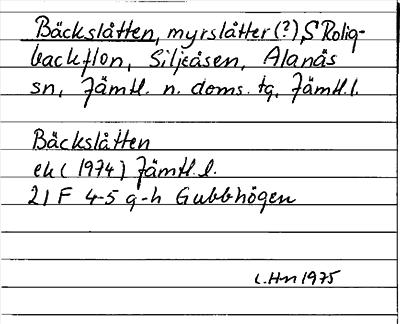 Bäckslåtten, myrslåtter(?), S Rolig-
backflon, Siljeåsen, Alanäs
sn, Jämtl. n. doms. tg, Jämtl.l.
Bäckslåtten
ek (1974) Jämtl.l.
21 F 4-5 g-h Gubbhögen
L.Hn 1975